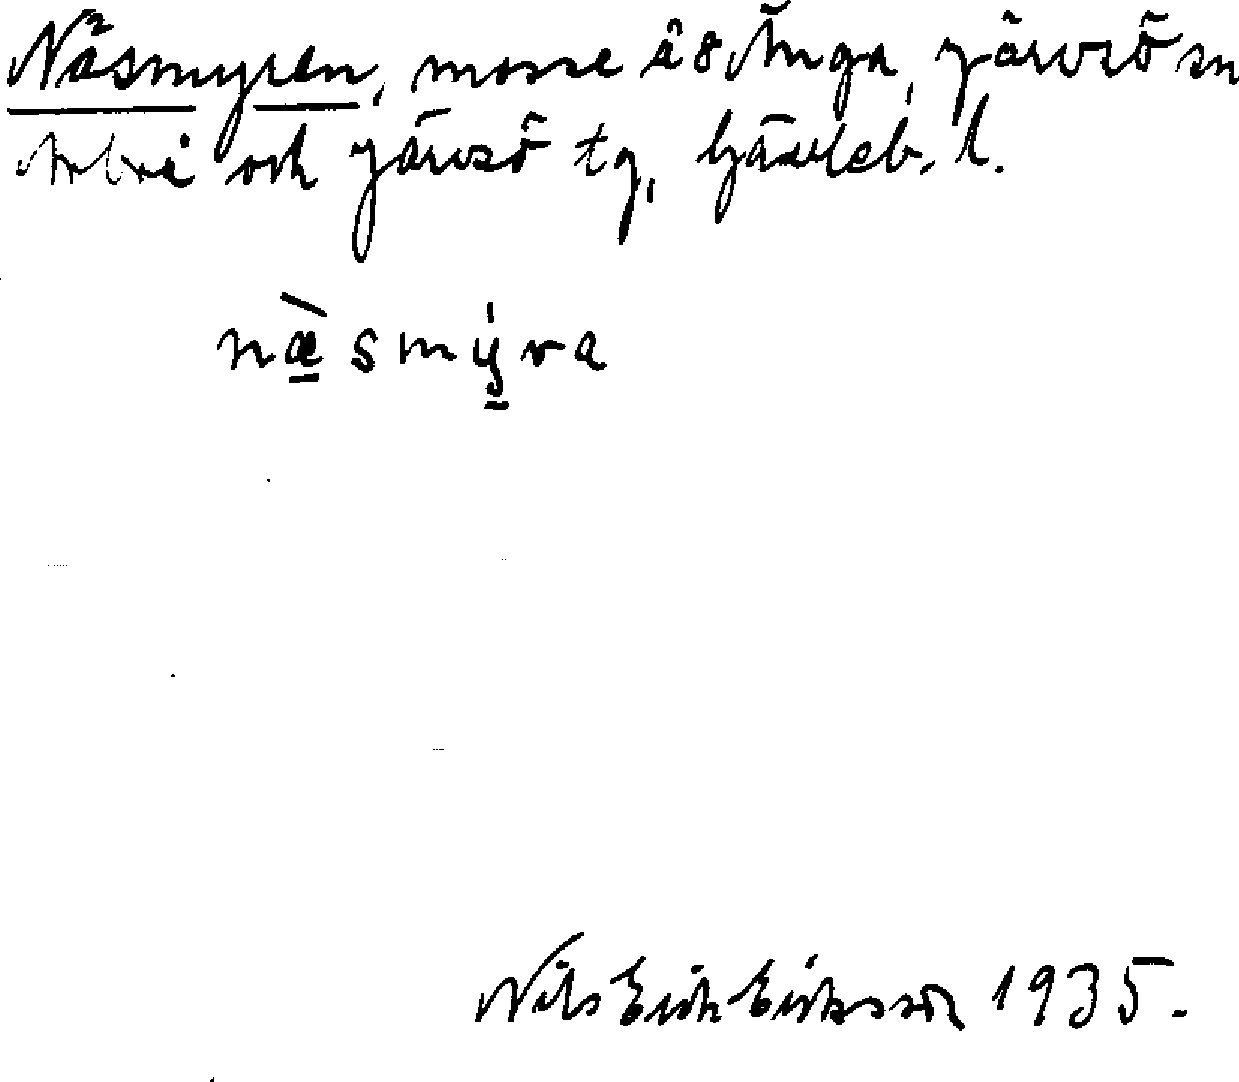 Näsmyren, mosse å 8 Änga, Järvsö sn
Arbrå och Järvsö tg, Gävleb. l.
næ̀smýra
Nils Erik Eriksson 1935.